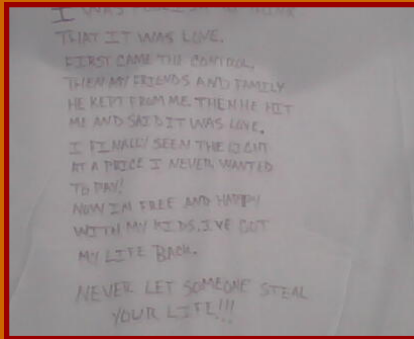 I WAS FOOLISH TO THINK
THAT IT WAS LOVE.
FIRST CAME THE CONTROL,
THEN MY FRIENDS AND FAMILY
HE KEPT FROM ME. THEN HE HIT
ME AND SAID IT WAS LOVE.
I FINALLY SEEN THE LIGHT
AT A PRICE I NEVER WANTED
TO PAY!
NOW IM FREE AND HAPPY
WITH MY KIDS. I'VE GOT
MY LIFE BACK.
NEVER LET SOMEONE STEAL
YOUR LIFE!!!